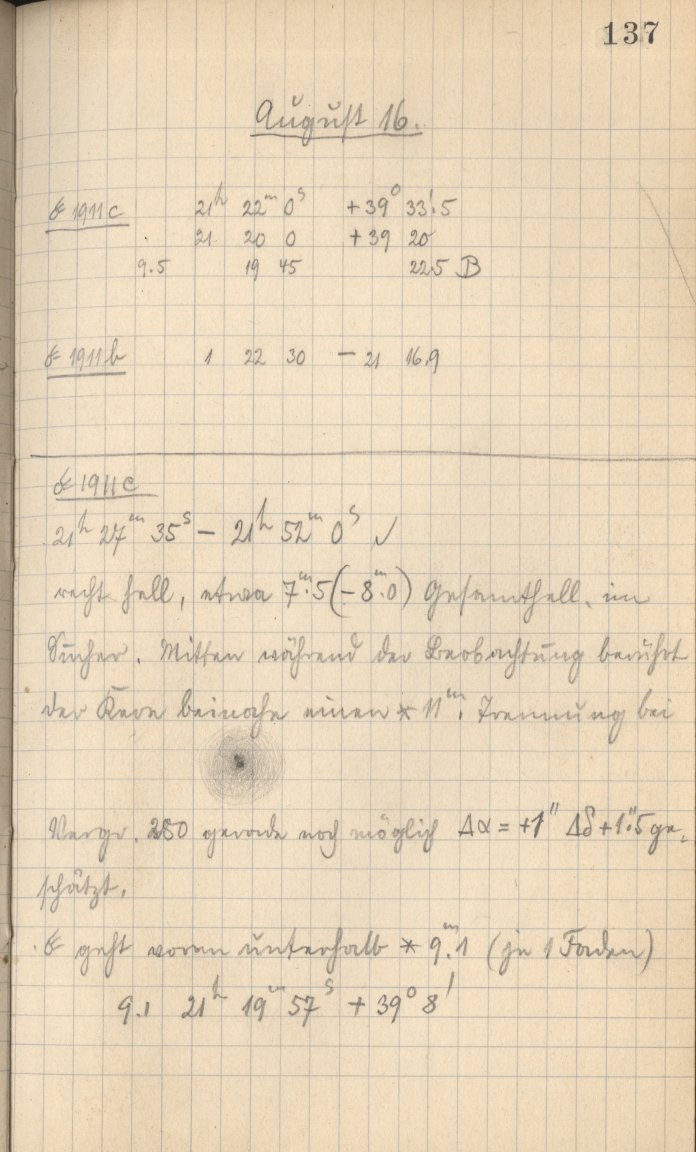 137
August 16.
☄ 1911 c 21ʰ 22ᵐ 0ˢ +39° 33'.5
21 20 0 +39 20
9.5 19 45 22.5 B
☄ 1911 b 1 22 30 − 21 16.9
☄ 1911 c
21ʰ 27ᵐ 35ˢ − 21ʰ 52ᵐ 0ˢ ✓
recht hell, etwa 7ᵐ.5 (−8ᵐ.0) Gesamthell. im
Sucher. Mitten während der Beobachtung berührt
der Kern beinahe einen * 11ᵐ. Trennung bei
Vergr. 280 gerade noch möglich Δα = +1" Δδ +1".5 ge-
schätzt.
☄ geht voran unterhalb * 9ᵐ.1 (je 1 Faden)
9.1 21ʰ 19ᵐ 57ˢ + 39° 8'